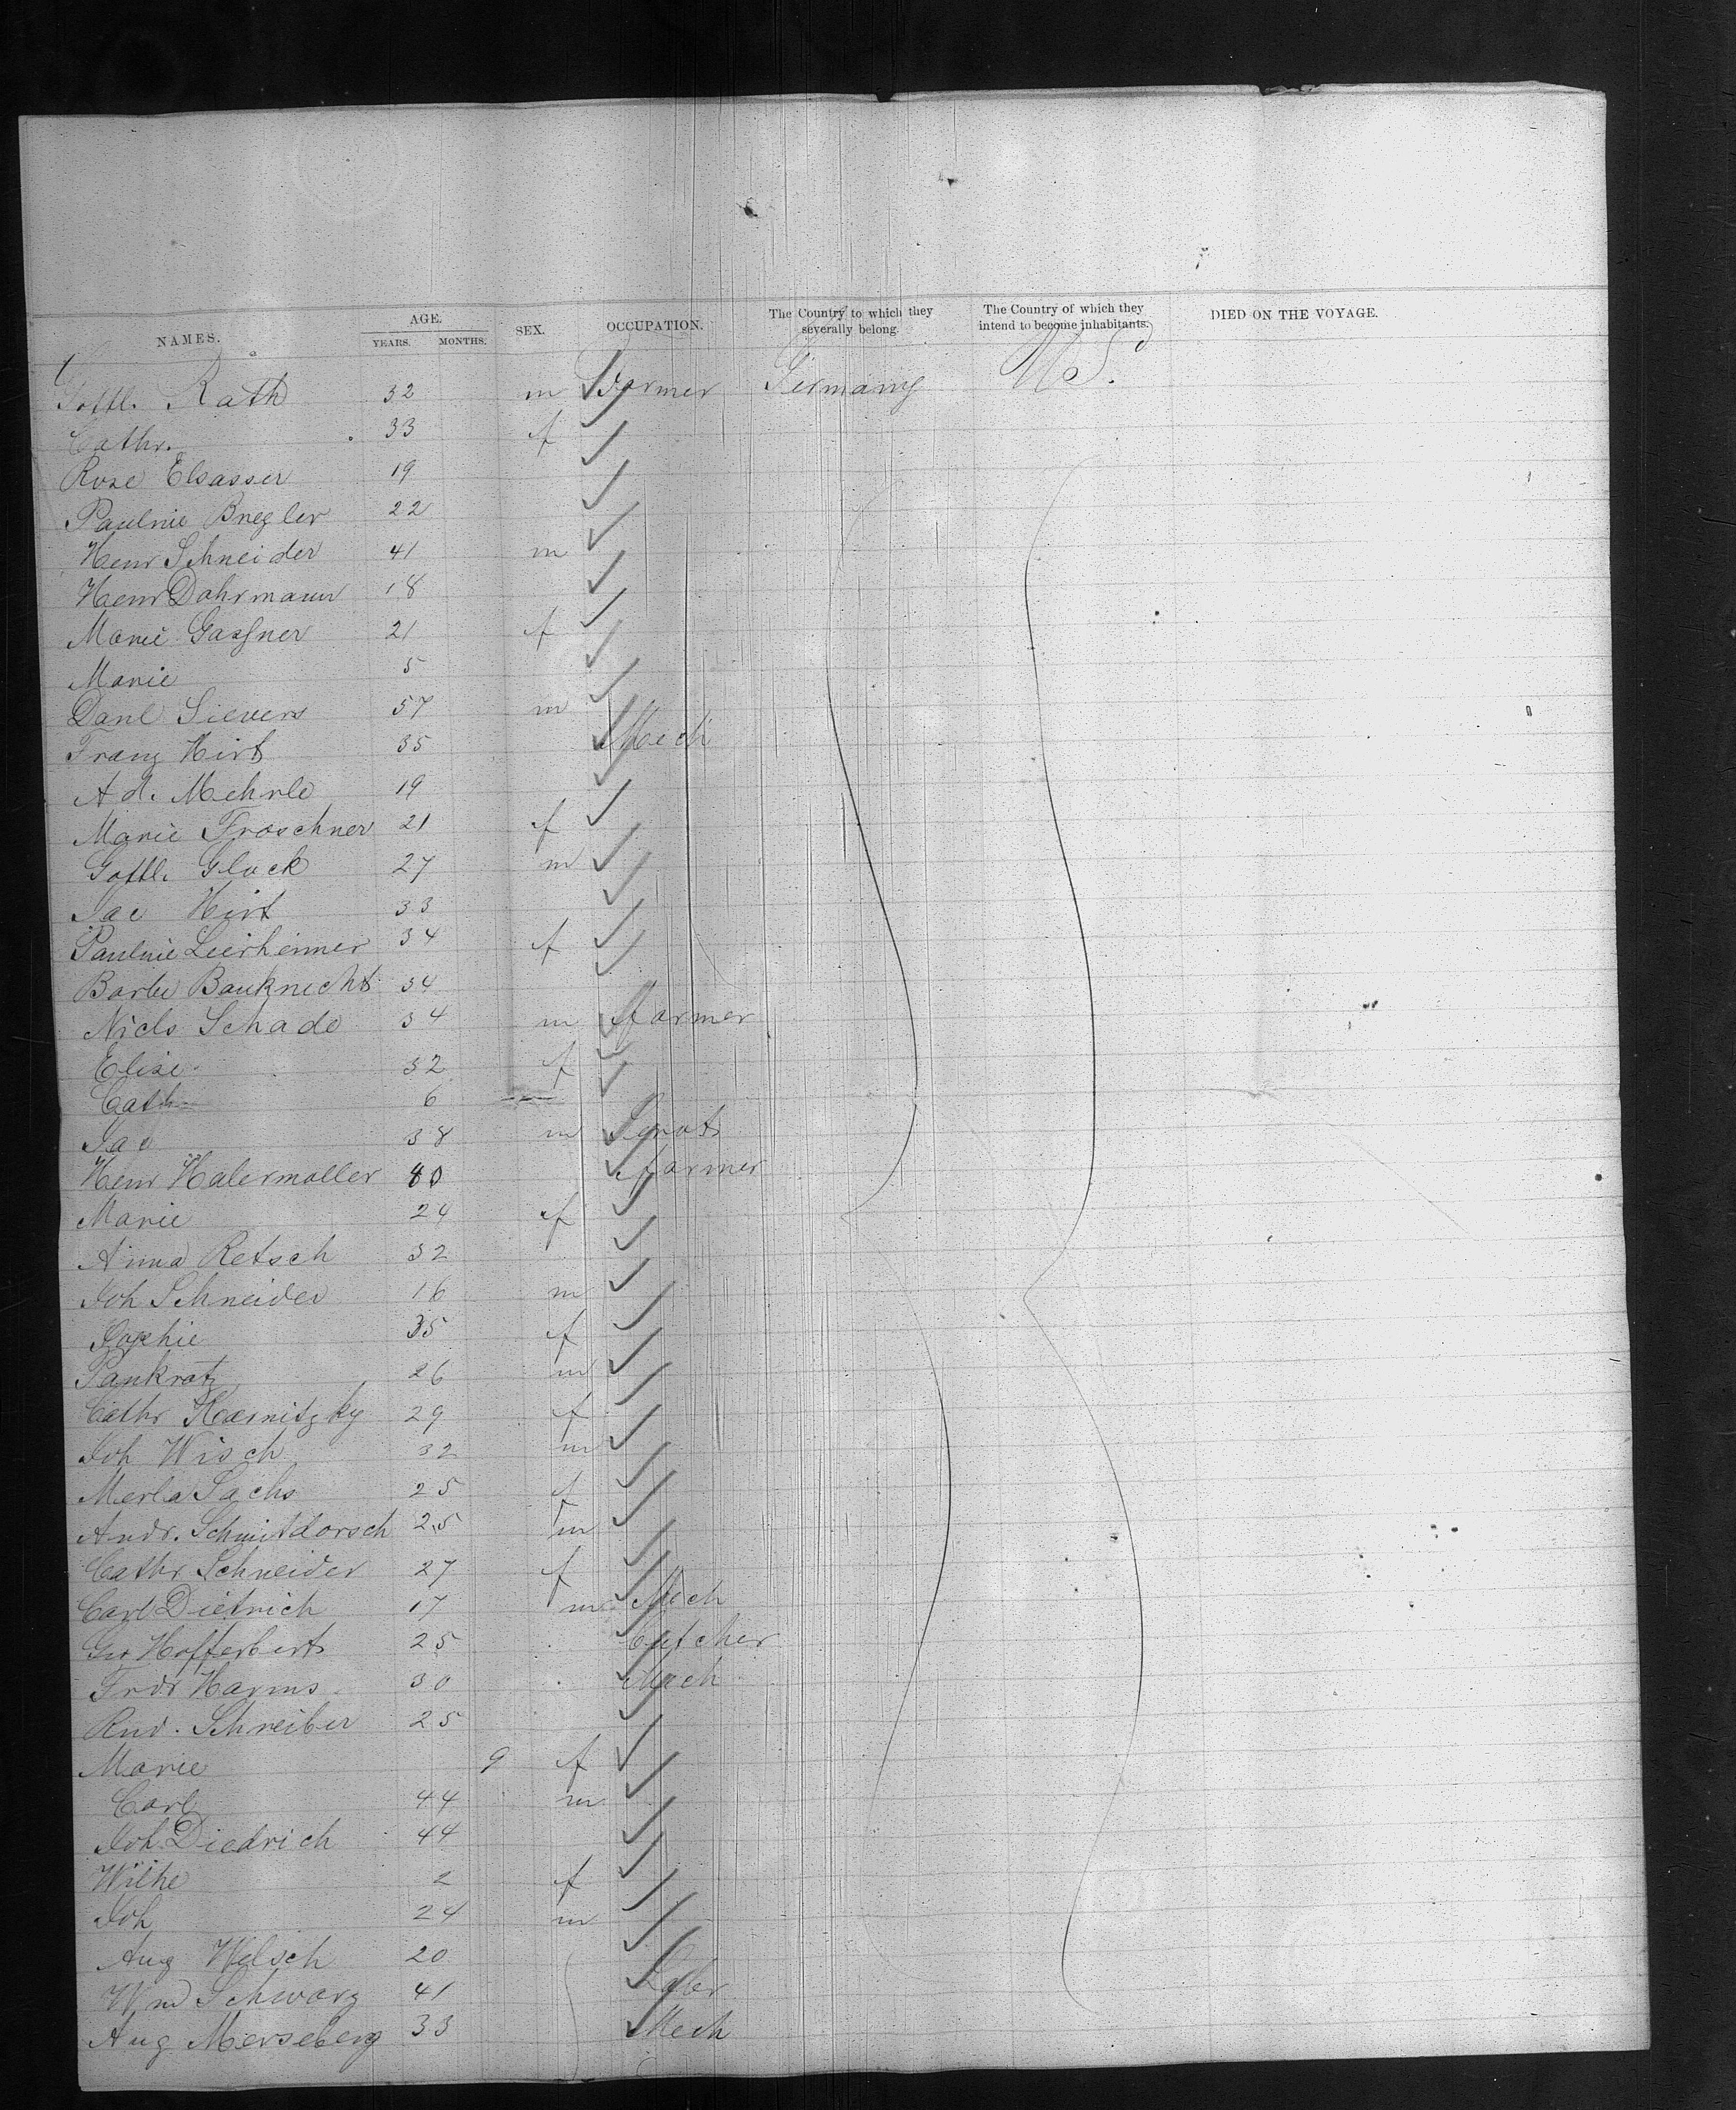 NAMES. AGE. YEARS. MONTHS. SEX. OCCUPATION. The Country to which they severally belong. The Country of which they intend to become inhabitants. DIED ON THE VOYAGE.
Gottl. Rath 32 m Farmer Germany U.S.
Cathr. 33 f
Rose Elsasser 19
Paulnie Bregler 22
Henr Schneider 41 m
Henr Dohrmann 18
Marie Gassner 21 f
Marie 5
Danl Sievers 57 m
Franz Hirt 35 Mech
Ad. Mehrle 19
Marie Froschner 21 f
Gottl. Gluck 27 m
Jac Hirt 33
Paulnie Leerheimer 34 f
Barbe Bauknecht 34
Nicls Schade 34 m Farmer
Elise 32 f
Cath 6
Jac 38 m
Henr Halermoller 40 Farmer
Marie 24 f
Anna Retsch 32
Joh Schneider 16 m
Sophie 35 f
Pankratz 26 m
Cathr Karnitzky 29 f
Joh Wisch 32 m
Merla Sachs 25 f
Andr. Schmitdorsch 25 m
Cathr Schneider 27 f
Carl Dietrich 17 m Mech
Geo Hofferbert 25 Butcher
Frdr Harms 30 Mech
Rud. Schreiber 25
Marie 9 f
Carl 44 m
Joh Diedrich 44
Wilhe 2 f
Joh 24 m
Aug Welsch 20
Wm Schwarz 41 Labr
Aug Merseberg 33 Mech